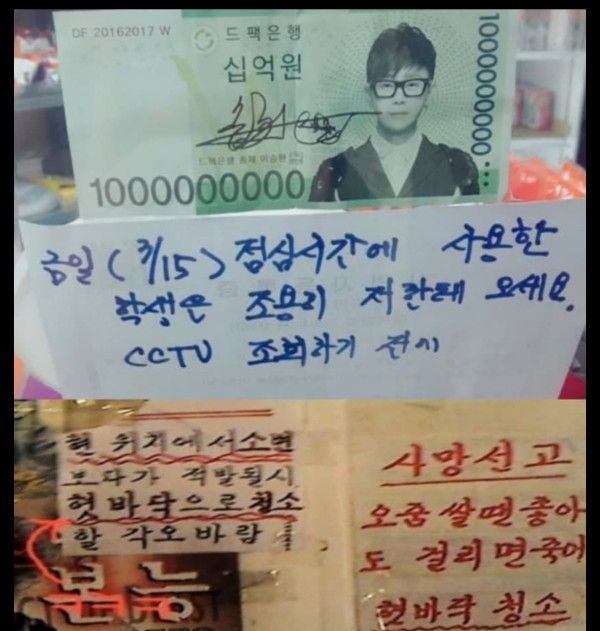 DF 20162017 W
드팩은행
십억원
1000000000
1000000000...
금일 (3/15) 점심시간에 사용한
학생은 조용히 저한테 오세요.
CCTV 조회하기 전에
현 위치에서소변
보다가 적발될시
혓바닥으로청소
할 각오바람
본능
사망선고
오줌쌀땐좋아
도 걸리면죽어
혓바닥 청소